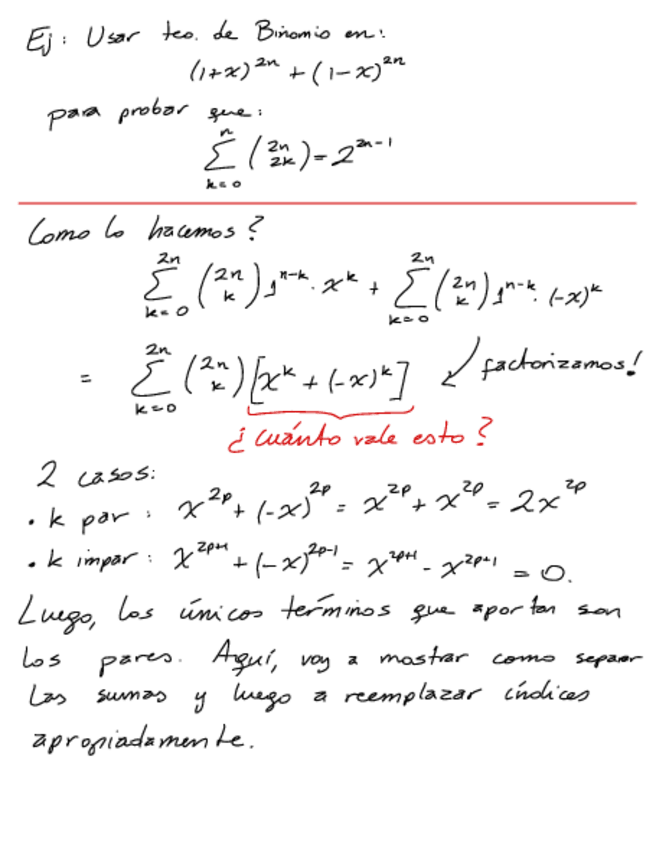 Ej: Usar teo. de Binomio en:
(1+x)^{2n} + (1-x)^{2n}
para probar que:
\sum_{k=0}^{n} \binom{2n}{2k} = 2^{2n-1}
Como lo hacemos?
\sum_{k=0}^{2n} \binom{2n}{k} 1^{n-k} \cdot x^k + \sum_{k=0}^{2n} \binom{2n}{k} 1^{n-k} \cdot (-x)^k
= \sum_{k=0}^{2n} \binom{2n}{k} [x^k + (-x)^k] ↙ factorizamos!
¿Cuánto vale esto?
2 casos:
• k par : x^{2p} + (-x)^{2p} = x^{2p} + x^{2p} = 2x^{2p}
• k impar : x^{2p+1} + (-x)^{2p-1} = x^{2p+1} - x^{2p+1} = 0.
Luego, los únicos términos que aportan son
los pares. Aquí, voy a mostrar como separar
las sumas y luego a reemplazar índices
apropiadamente.